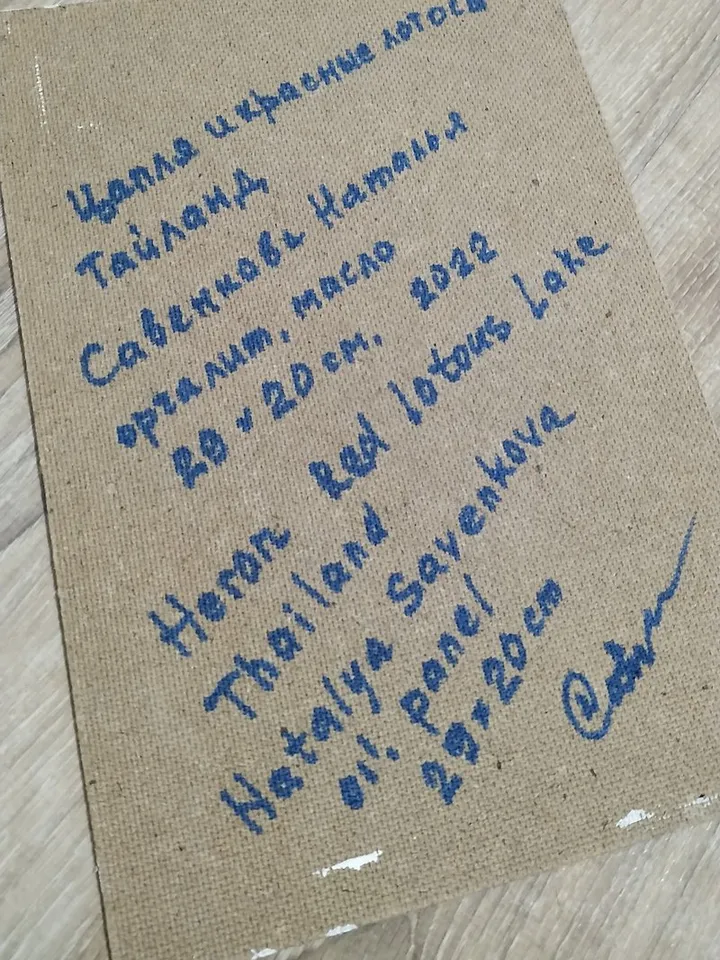 Цапля и красные лотосы
Тайланд
Савенкова Наталья
оргалит, масло
29 × 20 см. 2022
Heron Red lotous Lake
Thailand
Natalya Savenkova
oil. panel
29 × 20 cm